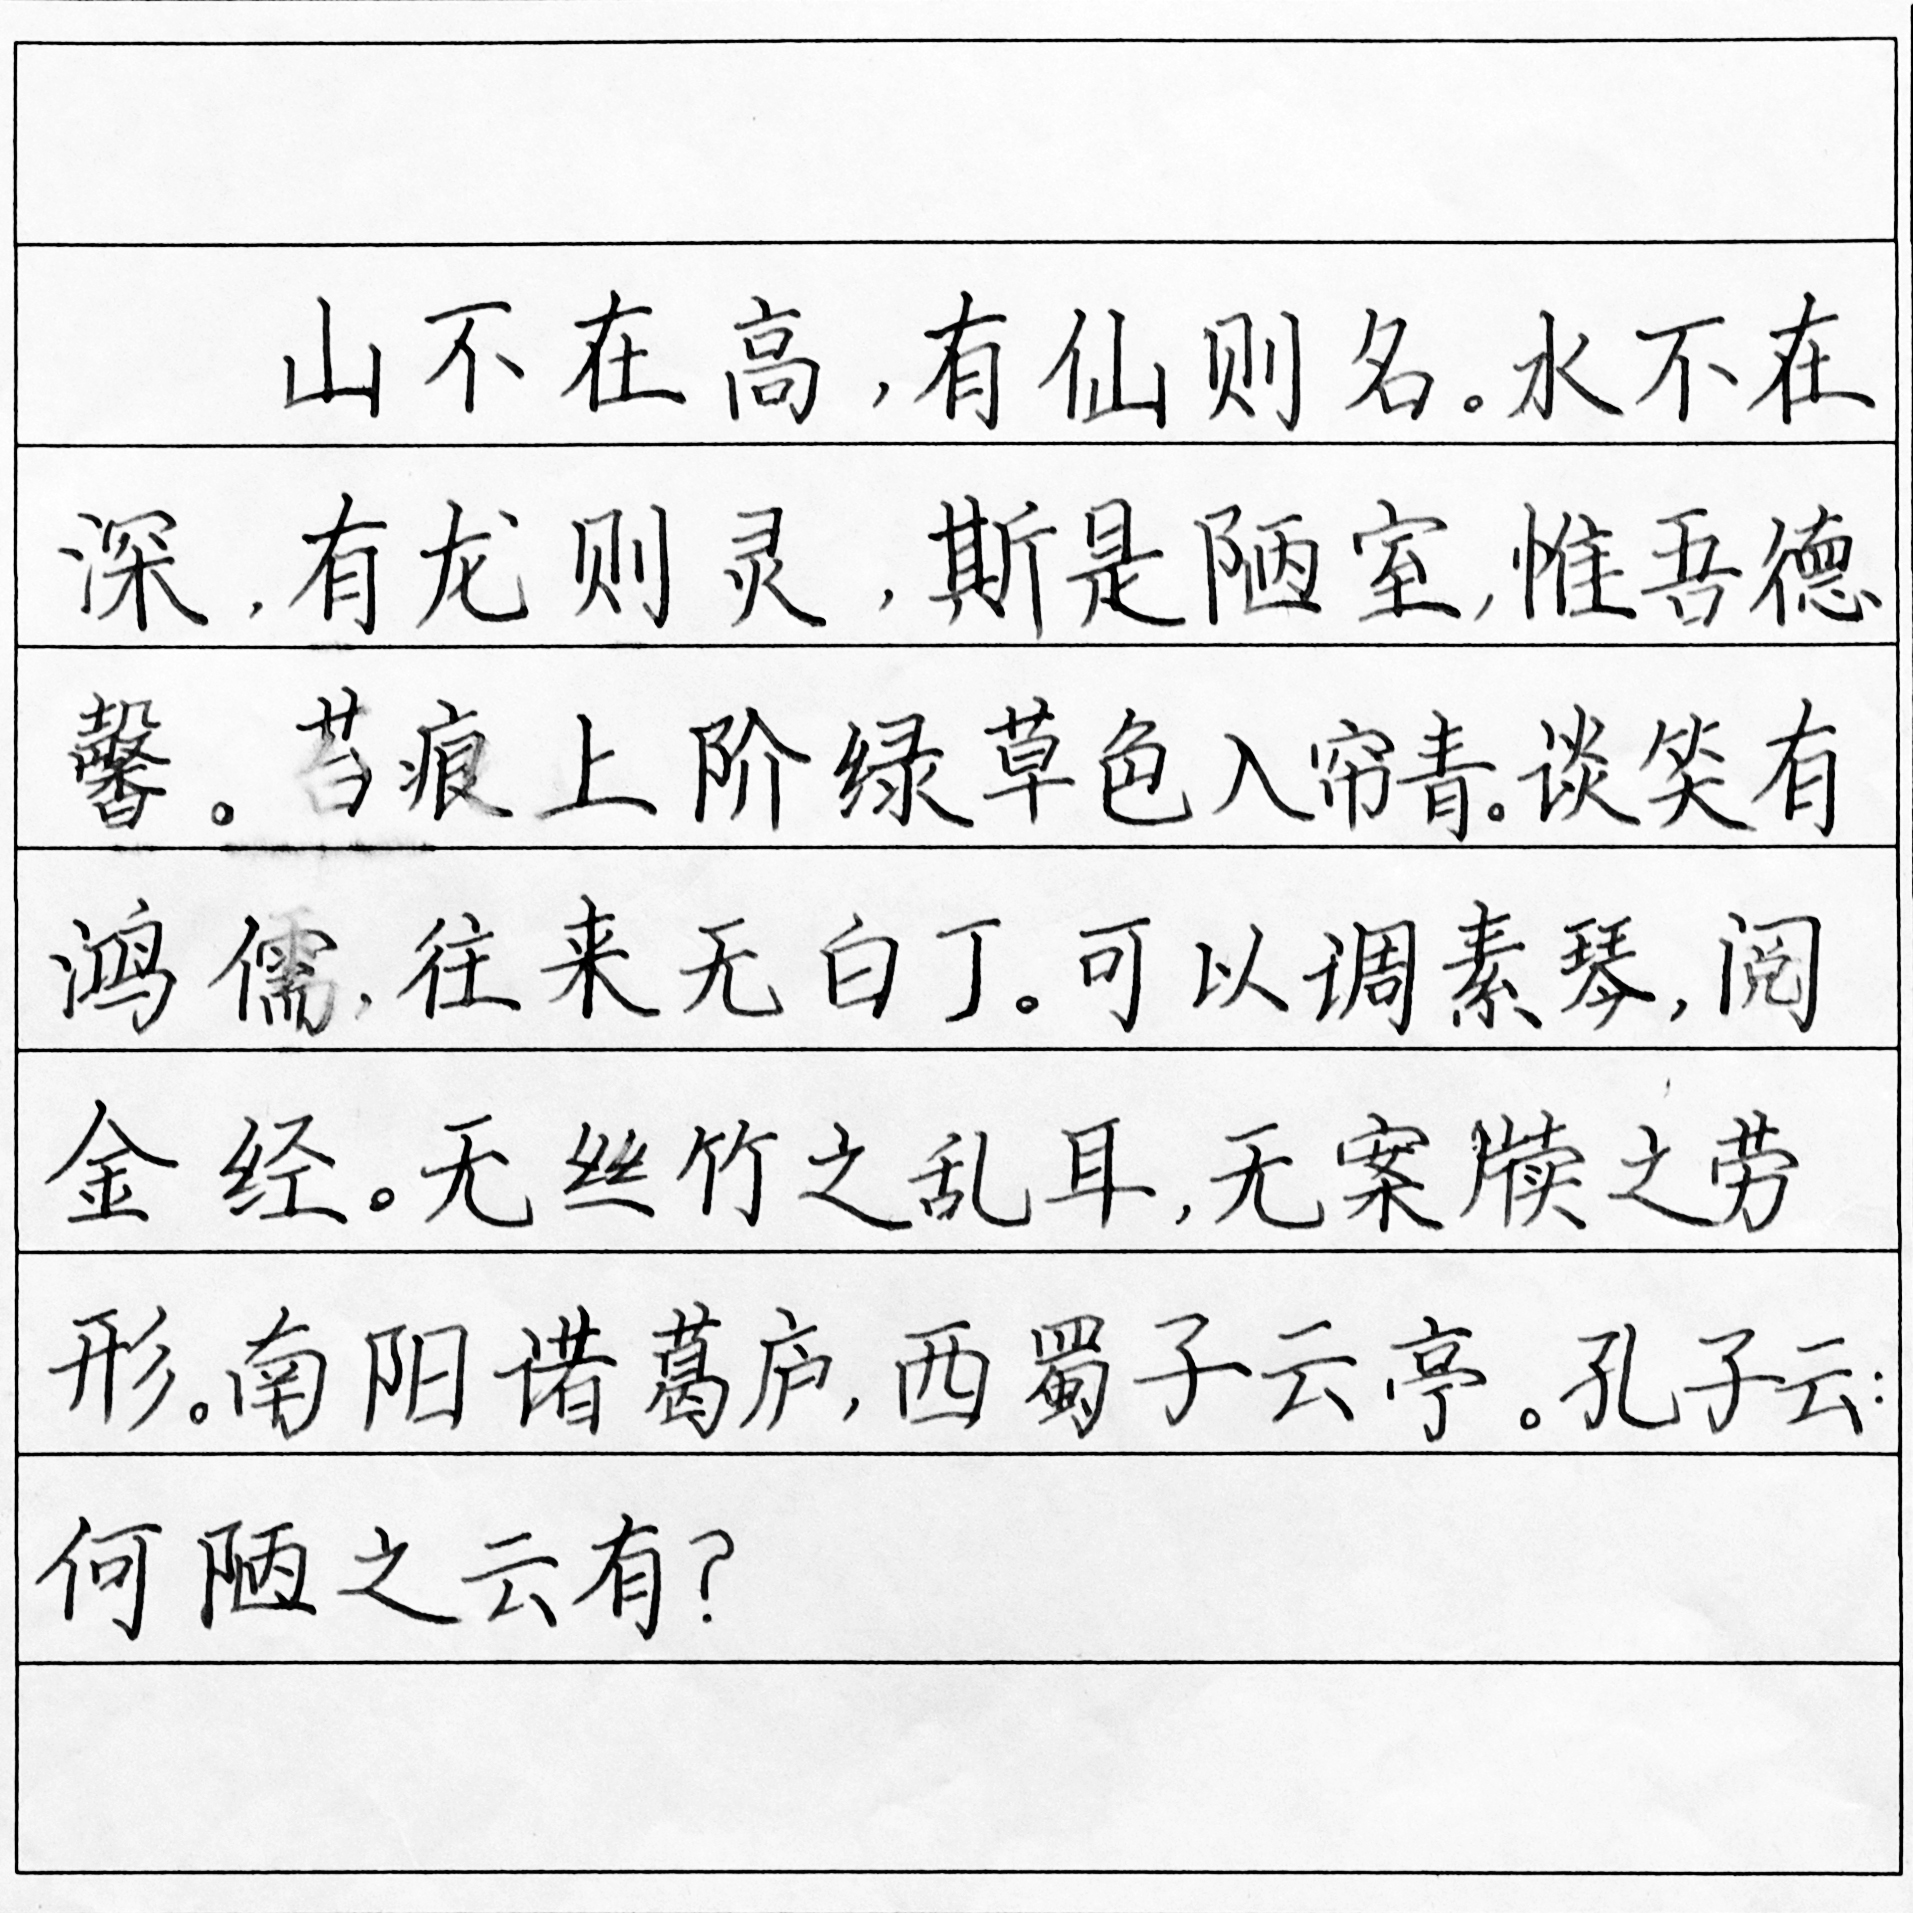 山不在高,有仙则名。水不在
深,有龙则灵,斯是陋室,惟吾德
馨。苔痕上阶绿草色入帘青。谈笑有
鸿儒,往来无白丁。可以调素琴,阅
金经。无丝竹之乱耳,无案牍之劳
形。南阳诸葛庐,西蜀子云亭。孔子云:
何陋之云有?